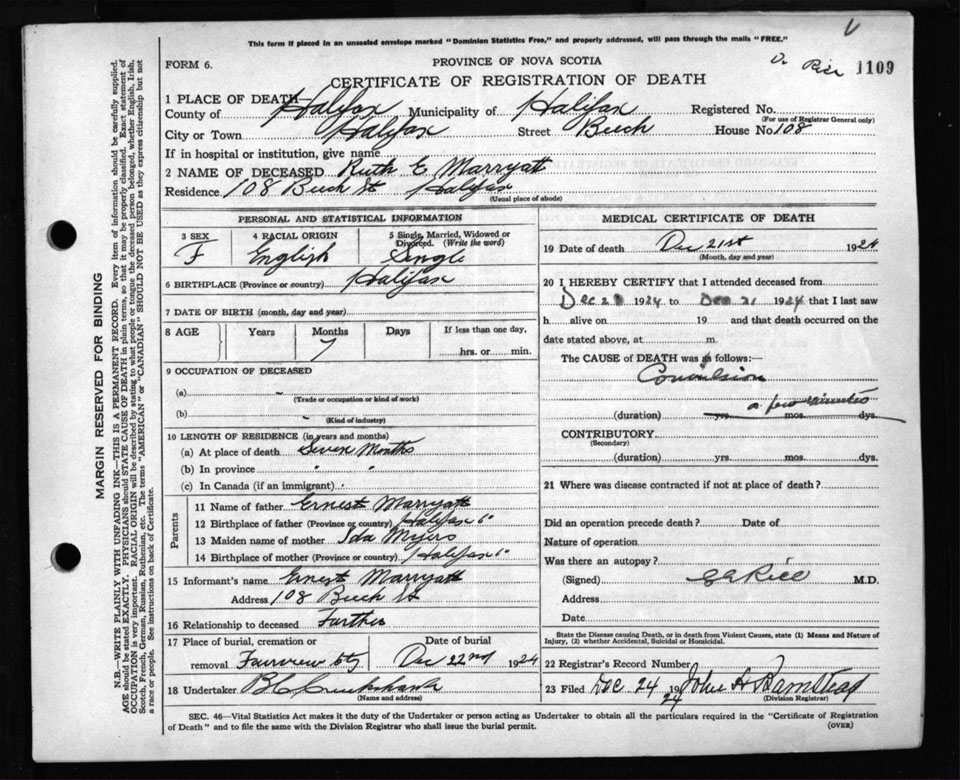 This form if placed in an unsealed envelope marked "Dominion Statistics Free," and properly addressed, will pass through the mails "FREE."
FORM 6.
PROVINCE OF NOVA SCOTIA
Dr Rice 1109
CERTIFICATE OF REGISTRATION OF DEATH
1 PLACE OF DEATH—
County of Halifax Municipality of Halifax Registered No.
(For use of Registrar General only)
City or Town Halifax Street Beech House No. 108
If in hospital or institution, give name
2 NAME OF DECEASED Ruth E. Marryatt
Residence 108 Beech St Halifax
(Usual place of abode)
PERSONAL AND STATISTICAL INFORMATION
3 SEX 4 RACIAL ORIGIN 5 Single, Married, Widowed or Divorced. (Write the word)
F English Single
6 BIRTHPLACE (Province or country) Halifax
7 DATE OF BIRTH (month, day and year)
8 AGE Years Months Days If less than one day,
7
hrs. or min.
9 OCCUPATION OF DECEASED
(a)
(Trade or occupation or kind of work)
(b)
(Kind of industry)
10 LENGTH OF RESIDENCE (in years and months)
(a) At place of death Seven Months
(b) In province " "
(c) In Canada (if an immigrant)
Parents
11 Name of father Ernest Marryatt
12 Birthplace of father (Province or country) Halifax Co
13 Maiden name of mother Ida Myers
14 Birthplace of mother (Province or country) Halifax Co
15 Informant's name Ernest Marryatt
Address 108 Beech St
16 Relationship to deceased Farther
17 Place of burial, cremation or removal Fairview Cty
Date of burial Dec 22nd 1924
18 Undertaker
(Name and address)
MEDICAL CERTIFICATE OF DEATH
19 Date of death Dec 21st 1924
(Month, day and year)
20 I HEREBY CERTIFY that I attended deceased from
Dec 21 1924 to Dec 21 1924 that I last saw
h alive on 19 and that death occurred on the
date stated above, at m.
The CAUSE of DEATH was as follows:—
Convulsion
a few minutes
(duration) yrs. mos. dys.
CONTRIBUTORY
(Secondary)
(duration) yrs. mos. dys.
21 Where was disease contracted if not at place of death?
Did an operation precede death? Date of
Nature of operation
Was there an autopsy?
(Signed) Rice M.D.
Address
Date
State the Disease causing Death, or in death from Violent Causes, state (1) Means and Nature of
Injury, (2) whether Accidental, Suicidal or Homicidal.
22 Registrar's Record Number
23 Filed Dec 24 1924 John H Barnstead
(Division Registrar)
SEC. 46—Vital Statistics Act makes it the duty of the Undertaker or person acting as Undertaker to obtain all the particulars required in the "Certificate of Registration
of Death" and to file the same with the Division Registrar who shall issue the burial permit.
(OVER)
MARGIN RESERVED FOR BINDING
N.B.—WRITE PLAINLY WITH UNFADING INK—THIS IS A PERMANENT RECORD. Every item of information should be carefully supplied.
AGE should be stated EXACTLY. PHYSICIANS should STATE CAUSE OF DEATH in plain terms, so that it may be properly classified. Exact statement of
OCCUPATION is very important. RACIAL ORIGIN will be described by stating to what people or tongue the deceased person belonged, whether English, Irish,
Scotch, French, German, Russian, Ruthenian, etc. The terms "AMERICAN" or "CANADIAN" SHOULD NOT BE USED as they express citizenship but not
a race or people. See instructions on back of Certificate.